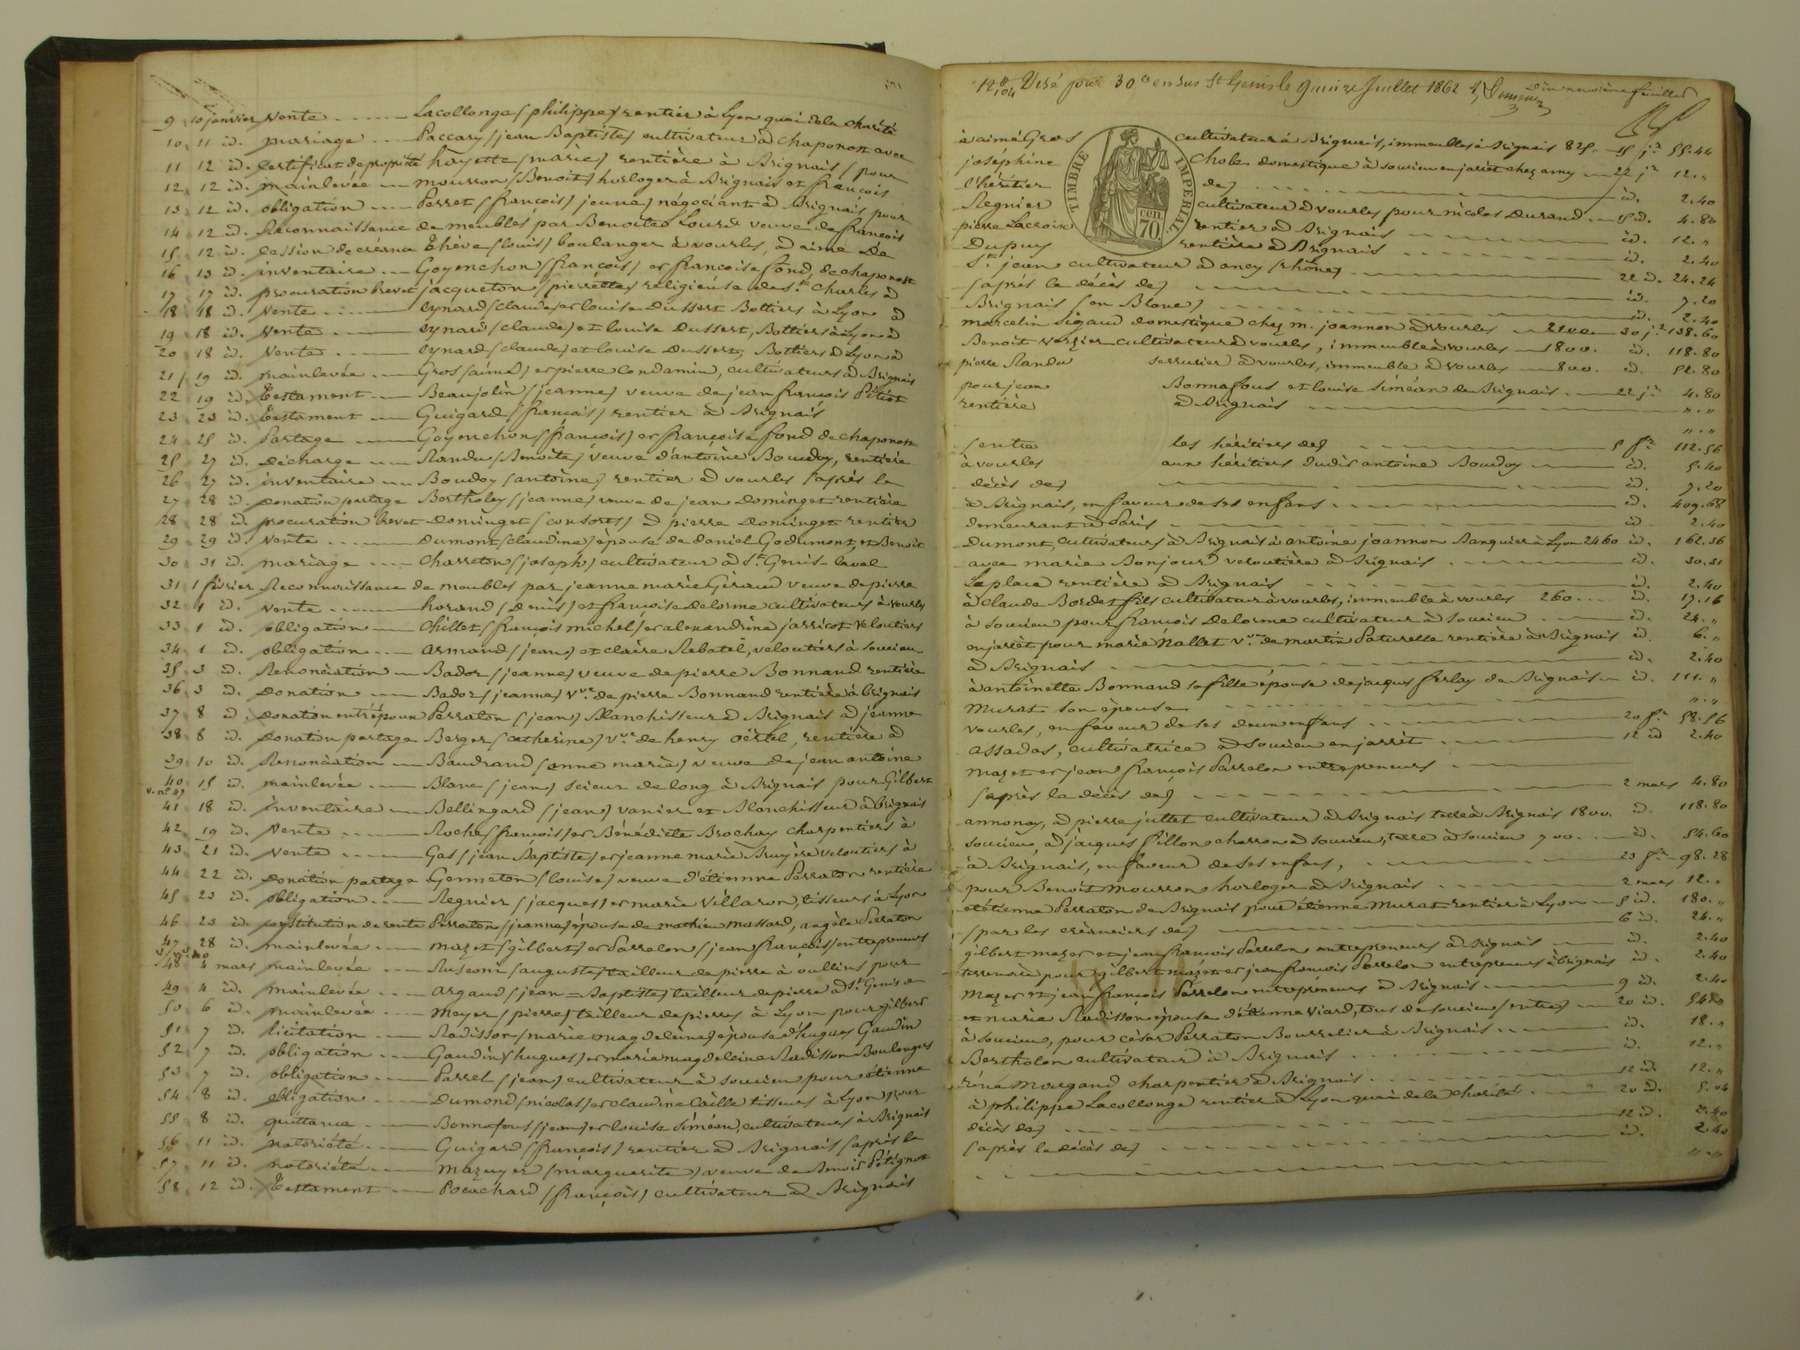 9 10 janvier vente Lacollonge (philippe) rentier à Lyon quai de la charité
10 11 id. mariage Paccary (jean Baptiste) cultivateur à chaponost avec
11 12 id. certificat de propriété hayette (marie) rentière à Brignais (pour
12 12 id. mainlevée mousson (Benoit) horloger à Brignais et françois
13 12 id. obligation Perret (françois) jeune, négociant à Brignais pour
14 12 id. Reconnaissance de meubles par Benoite Lourd veuve de françois
15 12 id. cession de créance Thève (louis) boulanger à vourles, à aimé De
16 13 id. inventaire Goyenchon (françois) et françoise fond, de chaponost
17 17 id. procuration brevet jacqueton (pierrette) religieuse de St. charles à
18 18 id. vente eynard (claude) et louise Dussert Bottiers à Lyon à
19 18 id. vente eynard (claude) et louise Dussert, Bottiers à Lyon à
20 18 id. vente eynard (claude) et louise Dussert, Bottiers à Lyon à
21 19 id. mainlevée Gros (aimé) et pierre Condamin, cultivateurs à Brignais
22 19 id. Testament Beaujolin (jeanne) veuve de jean françois
23 23 id. Testament Guigard (français) rentier à Brignais
24 25 id. Partage Goyenchon (françois) et françoise fond de chaponost
25 27 id. Décharge Randu (Benoite) veuve d'antoine Boudoy, rentière
26 27 id. inventaire Boudoy (antoine) rentier à vourles (après le
27 28 id. Donation partage Bertholey (jeanne) veuve de jean Dominget rentière
28 28 id. procuration brevet Dominget (consorts) à pierre Dominget rentier
29 29 id. vente Dumont (claudine) épouse de daniel Godumont, et Benoit
30 31 id. mariage Charreton (joseph) cultivateur à St. Genis-laval
31 1 février Reconnaissance de meubles par jeanne marie Giraud veuve de pierre
32 1 id. vente horand (Denis) et françoise delorme cultivateurs à vourles
33 1 id. obligation Chillet (françois michel) et alexandrine jarricot veloutiers
34 1 id. obligation armand (jean) et claire Rebatel, veloutiers à soucieu
35 3 id. Renonciation Bador (jeanne) veuve de pierre Bonnand rentière
36 3 id. Donation Bador (jeanne) Vve. de pierre Bonnand rentière à brignais
37 8 id. Donation entre époux Perraton (jean) Blanchisseur à Brignais à jeanne
38 8 id. Donation partage Berger (catherine) Vve. de henry oërtel, rentière à
39 10 id. Renonciation Baudrand (anne marie) veuve de jean antoine
40 15 id. mainlevée Blanc (jean) scieur de long à Brignais pour Gilbert
V. no. 47
41 18 id. inventaire Bellingard (jean) vanier et Blanchisseur à brignais
42 19 id. vente Roche (françois) et Bénédicte Brochay charpentiers à
43 21 id. vente Gas (jean Baptiste) et jeanne marie Bruyère veloutiers à
44 22 id. Donation partage Genneton (louise) veuve d'étienne Perraton rentière
45 23 id. obligation Regnier (jacques) et marie Villaron, tisseurs à Lyon
46 23 id. constitution de rente Perraton (jeanne) épouse de mathieu massard, angèle Perraton
47 28 id. mainlevée mazet (gilbert) et Parrelon (jean françois) entrepreneurs
48 4 mars mainlevée Rusconi (auguste) tailleur de pierre à oullins pour
49 4 id. mainlevée argaud (jean=Baptiste) tailleur de pierre à St. Genis en
50 6 id. mainlevée meyer (pierre) tailleur de pierres à Lyon pour gilbert
51 7 id. licitation Radisson (marie magdeleine) épouse d'hugues Gaudin
52 7 id. obligation Gaudin (hugues) et marie magdeleine Radisson Boulangers
53 7 id. obligation Parrel (jean) cultivateur à soucieu pour étienne
54 8 id. obligation Dumond (nicolas) et claudine Caille tisseurs à Lyon pour
55 8 id. quittance Bonnafous (jean) et louise Siméan, cultivateurs à Brignais
56 11 id. notoriété Guigard (françois) rentier à Brignais (après le
57 11 id. notoriété mazuyer (marguerite) veuve de Benoit Pétignot
58 12 id. Testament Pocachard (françois) cultivateur à Brignais
Visé pour 30 c en sus St Genis le quinze Juillet 1862
feuillet
TIMBRE IMPERIAL
cen 70.
à aimé Gros cultivateur à Brignais, immeubles à Brignais 825. 15 jr. 55.44
joséphine Chole domestique à soucieu en jarret chez amy 22 jr 12.,,
l'héritier de) id. 2.40
Regnier cultivateur à vourles pour nicolas Durand 15 id. 4.80
pierre Lacroix rentier à Brignais id. 12.,,
Dupuy rentière à Brignais id. 2.40
St. jean cultivateur à ancy (rhône) 22 id. 24.24
(après le décès de) id. 7.20
Brignais (en Blanc) id. 2.40
marcelin Sigaud domestique chez m. joannon à vourles 2100. 30 jr. 138.60
Benoit Verzier cultivateur à vourles, immeuble à vourles 1800. id. 118.80
pierre Randu serrurier à vourles, immeuble à vourles 800. id. 52.80
pour jean Bonnafous et louise Siméan de Brignais 22 jr. 4.80
rentière à Brignais ,,.,,
,,.,,
(entre les héritiers de) 5 fr. 112.56
à vourles aux héritiers dudit antoine Boudoy id. 5.40
décès de) id. 7.20
à Brignais, en faveur de ses enfans id. 409.68
demeurant à Paris id. 2.40
Dumont, cultivateurs à Brignais à antoine joannon Banquier à Lyon 2460 id. 162.36
avec marie Bonjour veloutière à Brignais id. 30.31
Laplace rentière à Brignais id. 2.40
à Claude Bordet fils cultivateur à vourles, immeuble à vourles 260. id. 17.16
à soucieu pour françois delorme cultivateur à soucieu id. 24.,,
en jarret pour marie Nallet Vve. de martin Paturelle rentière à Brignais id. 6.,,
à Brignais id. 2.40
à antoinette Bonnand sa fille épouse de jacques ferlay de Brignais id. 111.,,
murat son épouse ,,.,,
vourles, en faveur de ses deux enfans 20 fr. 58.56
assadas, cultivatrice à soucieu en jarret 12 id 2.40
mazet et jean françois Parrelon entrepreneurs
(après le décès de) 2 mars 4.80
annonay, à pierre jullet cultivateur à Brignais terre à Brignais 1800. id. 118.80
soucieu, à jacques Pillon charron à soucieu, terre à soucieu 700. id. 54.60
à Brignais, en faveur de ses enfans, 23 fr. 98.28
pour Benoit mousson horloger à Brignais 2 mars 12.,,
et étienne Perraton de Brignais pour étienne murat rentier à Lyon 5 id. 180.,,
(par les créanciers de) 6 id. 24.,,
gilbert mazet et jean françois Parrelon entrepreneurs à Brignais id. 2.40
terrenoire pour gilbert mazet et jean françois Parrelon entrepreneurs à brignais id. 2.40
mazet et jean françois Parrelon entrepreneurs à Brignais 9 id. 2.40
et marie Radisson épouse d'étienne Viard, tous de soucieu (entre) 20 id.
à soucieu, pour césar Perraton Bourrelier à Brignais id. 18.,,
Bertholon cultivateur à Brignais id. 12.,,
réné morgand charpentier à Brignais 12 id. 12.,,
à philippe Lacollonge rentier à Lyon quai de la charité 20 id. 5.04
décès de) 12 id. 2.40
(après le décès de) id. 2.40
,,.,,